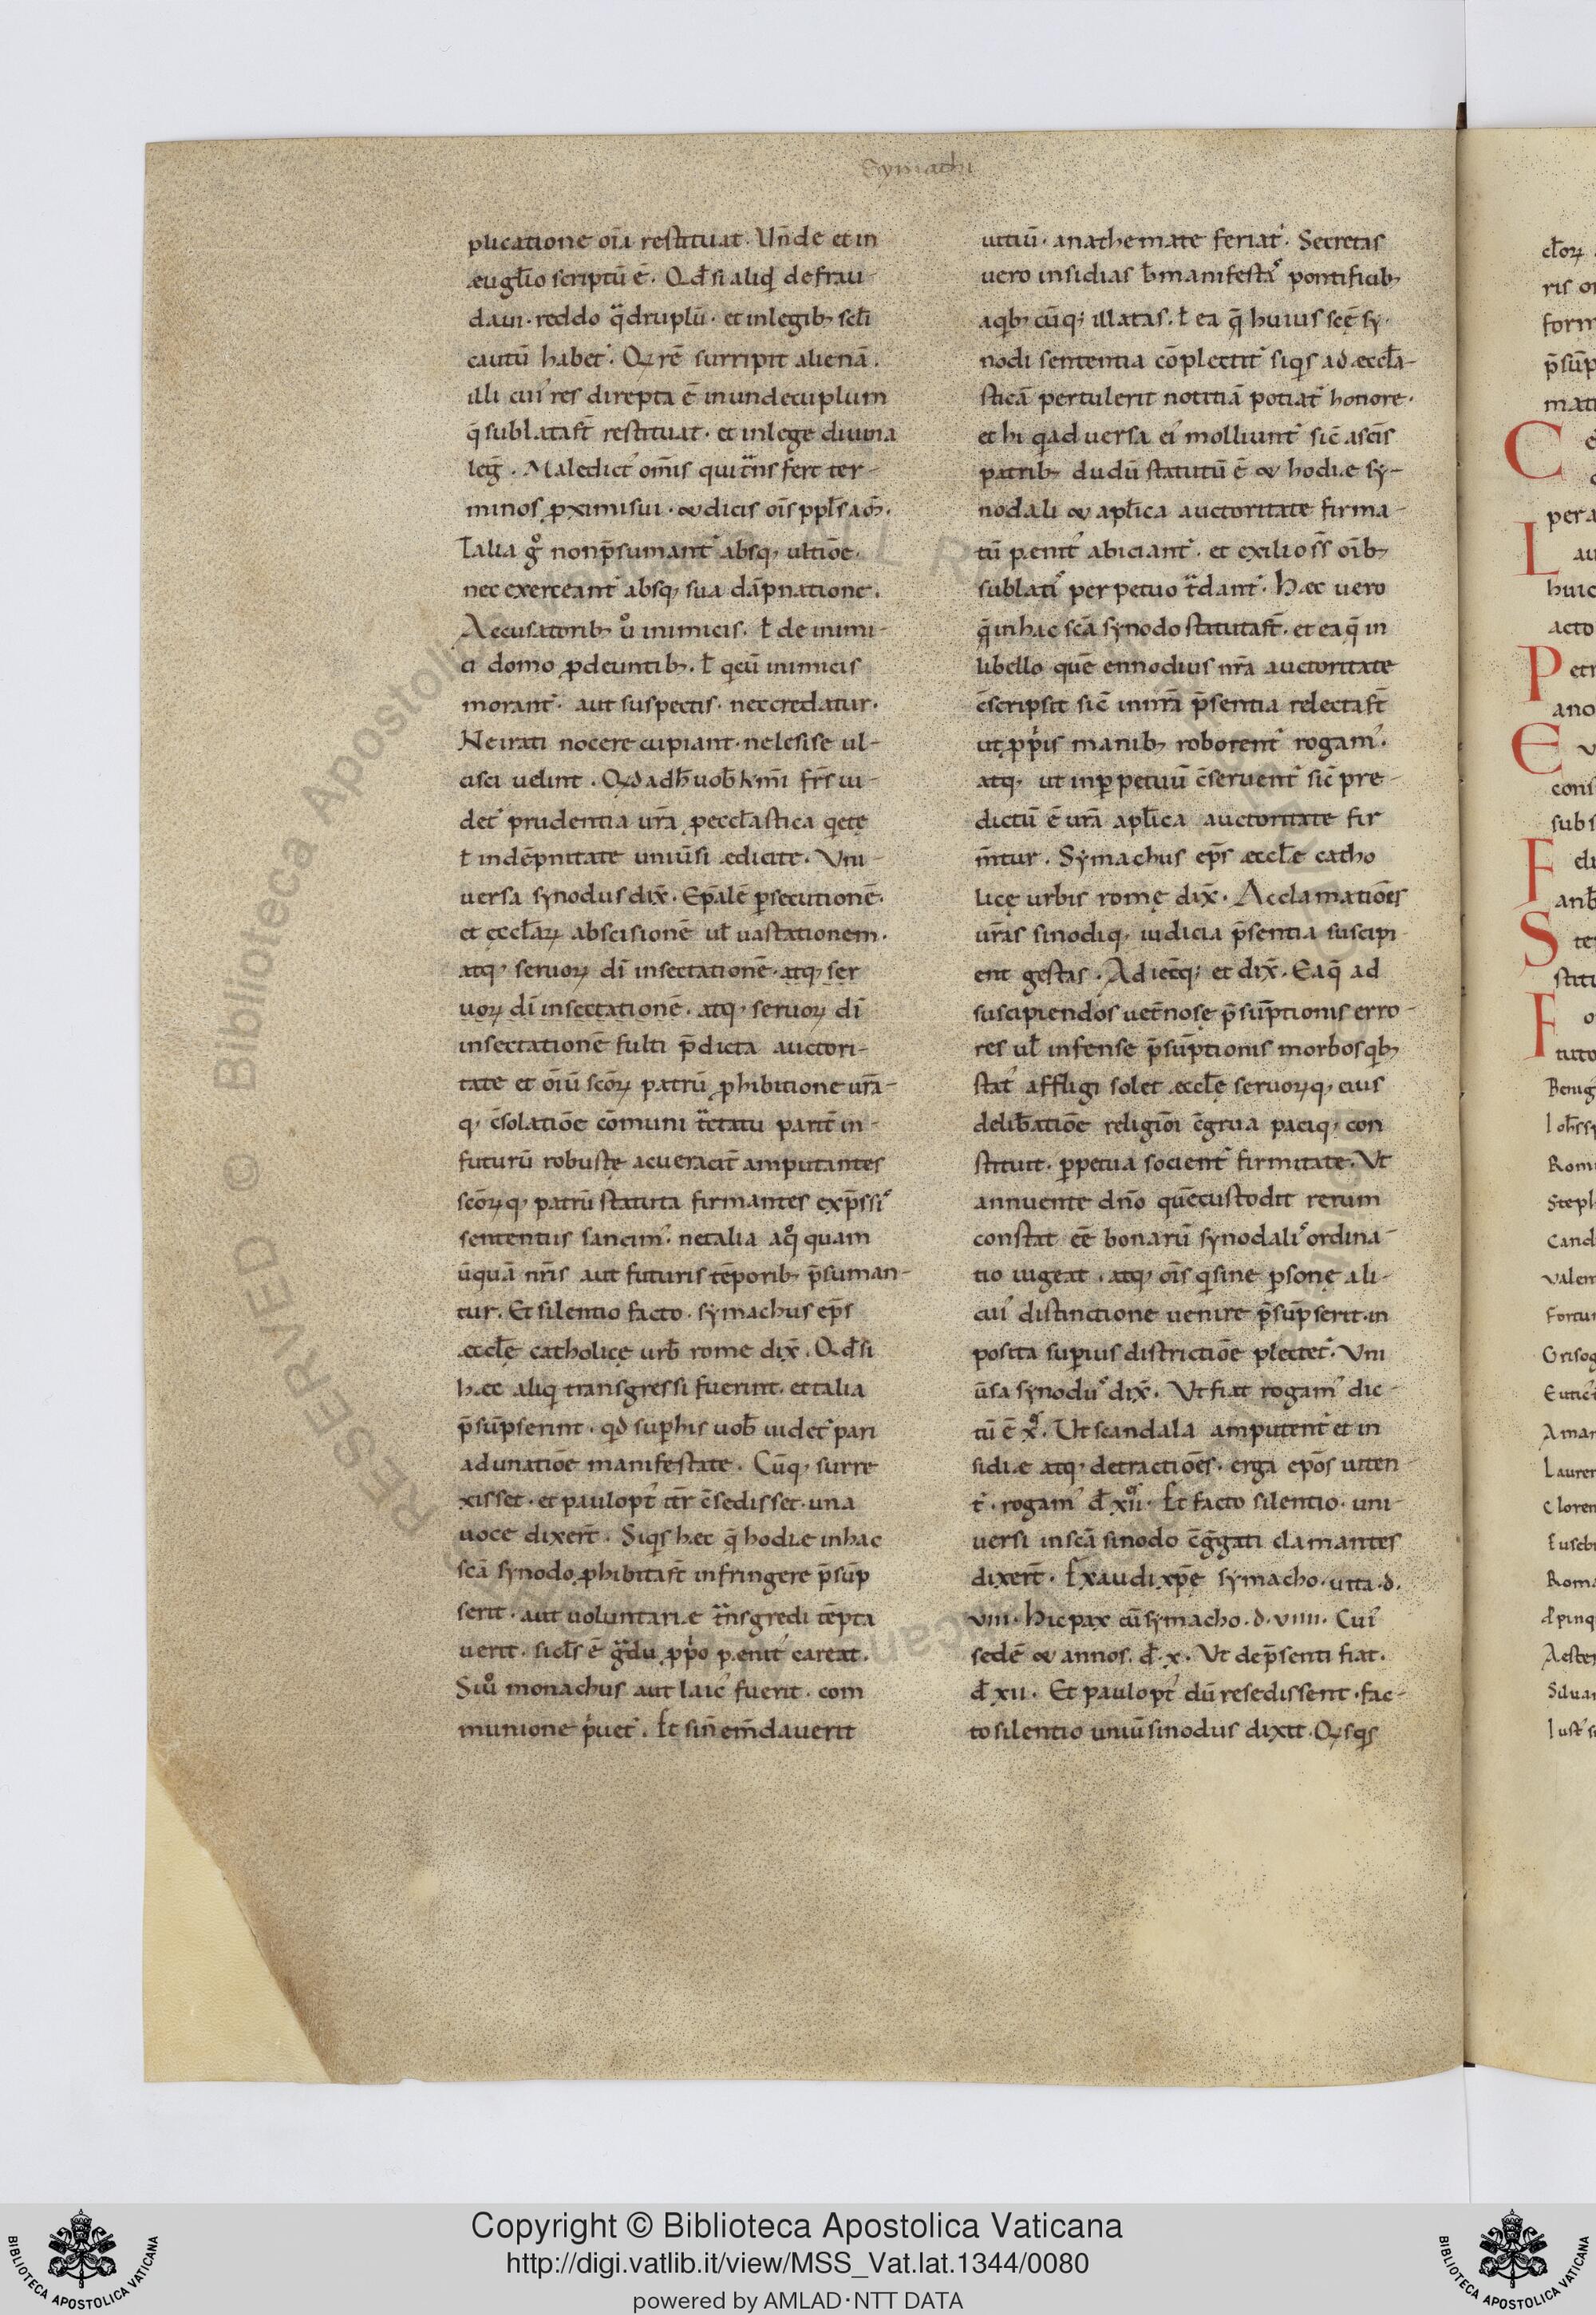 Symachi
plicatione om̄ia restituat. Vn̄de et in
æuglio scriptū ē. Qd̄ si aliqd̄ defrau-
daui. reddo q̄druplū. et inlegib; scli
cautū habet᷑. Q; rē surripit alienā.
illi cui᷒ res direpta ē inundecuplum
q̄ sublatasſt̄ restituat. et inlege diuina
leḡ. Maledict᷒ om̄is qui t̄nsfert ter-
minos ꝓximisui. & dic& oīs ppl̄s am̄.
Talia g̊ nonp̄sumant᷑ absq; ultiōe.
nec exerceant᷑ absq; sua dāpnatione.
Accusatorib; ů inimicis. ł de inimi-
ci domo ꝓdeuntib;. ł qcū inimicis
morant᷑. aut suspectis. nec credatur.
Ne irati nocere cupiant. ne lesi se ul-
cisci uelint. Q;d adh̄ uob̄ k̄mī fr̄s ui-
det᷑ prudentia ur̄a ꝓ eccl̄astica qete
ł indēpnitate uniūsi ædicite. Vni-
uersa synodus dix̄. Ep̄alē ꝑsecutionē.
et ęccl̄aꝝ abscisionē ul̄ uastationem.
atq; seruoꝝ dī insectationē. atq; ser
uoꝝ dī insectationē. atq; seruoꝝ dī
insectationē fulti p̄dicta auctori-
tate et oīū scōꝝ patrū ꝓhibitione ur̄a-
q; c̄solatiōe cōmuni t̄ctatu parit̄ in-
futurū robustę ac ueracit̄ amputantes
scōꝝq; patrū statuta firmantes exp̄ssi᷒
sententiis sancim᷒. ne talia aq̊ quam
ūquā nr̄is aut futuris tēporib; p̄suman-
tur. Et silentio facto. symachus ep̄s
æccl̄ę catholicę urb̄ rome dix̄. Qd̄ si
hæc aliq transgressi fuerint. et talia
p̄sūpserint. qd̄ suꝑhis uob̄ uidet᷑ pari
adunatiōe manifestate. Cūq; surre
xisset. et paulopt᷒ itr̄ c̄sedisset. una
uoce dixert̄. Siqs hæc q̄ hodie inhac
scā synodo ꝓhibitasſt̄ infringere p̄sūp
serit. aut uoluntariæ t̄nsgredi tēpta
uerit. sicl̄s ē ḡdu pp̄o p.enit᷒ careat.
Siů monachus aut laic᷒ fuerit. com
munione p̍uet᷑. Et si n̄ em̄dauerit
uitiū. anathemate feriat᷑. Secretas
uero insidias h̄ manifesta᷒ pontificib;
aqb; cūq; illatas. ł ea q̄ huius scē sy-
nodi sententia cōplectit᷑ siqs ad æccl̄a-
sticā pertulerit notitiā potiat᷑ honore.
et hi q aduersa ei᷒ molliunt᷑ sic̄ ascīs
patrib; dudū statutū ē & hodie sy-
nodali & apl̄ica auctoritate firma-
tū p.enit᷒ abiciant᷑. et exilio ss̄ oīb;
sublati᷒ perpetuo t̄dant᷑. Hæc uero
q̄ inhac scā synodo statutasſt̄. et ea q̄ in
libello quē ennodius nr̄a auctoritate
c̄scripsit sic̄ innr̄a p̄sentia relectasſt̄
ut pp̍is manib; roborent᷑ rogam᷒.
atq; ut inꝑpetuū c̄seruent᷑ sic̄ pre-
dictū ē ur̄a apl̄ica auctoritate fir
m̄tur. Symachus ep̄s æccl̄e catho
licę urbis romę dix̄. Acclamatiōes
ur̄as sinodiq; iudicia p̄sentia suscipi
ent gestas. Adiecitq; et dix̄. Ea q̄ ad
suscipiendos uet̄nosę p̄sūptionis erro-
res ul̄ infense p̄sūptionis morbos qb;
stat᷒ affligi solet æccl̄ę seruoꝝq; eius
delib̄atiōe religiōi c̄grua paciq; con
stituit. ꝑpetua socient᷑ firmitate. Vt
annuente dn̄o quē custodit rerum
constat eē bonarū synodali᷒ ordina-
tio uigeat. atq; oīs q sine ꝑsonę ali-
cui᷒ distinctione uenire p̄sūpserit. in
posita suꝑius districtiōe plectet᷑. Vni
ūsa synodu᷒ dix̄. Vt fiat rogam᷒ dic-
tū ē x. Ut scandala amputent᷑ et in
sidiæ atq; detractiōes. erga ep̄os uiten-
t᷑. rogam᷒ d̄ xii. Et facto silentio. uni-
uersi inscā sinodo c̄g̍gati clamantes
dixert̄. Exaudi xp̄ę symacho. uita. d.
viii. Hic pax cū symacho. d. viiii. Cui᷒
sedē & annos. d̄. x. Vt dep̄senti fiat.
d̄ xii. Et paulopt᷒ dū resedissent. fac-
to silentio uniūsinodus dixit. Q; sqs
Copyright © Biblioteca Apostolica Vaticana
http://digi.vatlib.it/view/MSS_Vat.lat.1344/0080
powered by AMLAD·NTT DATA